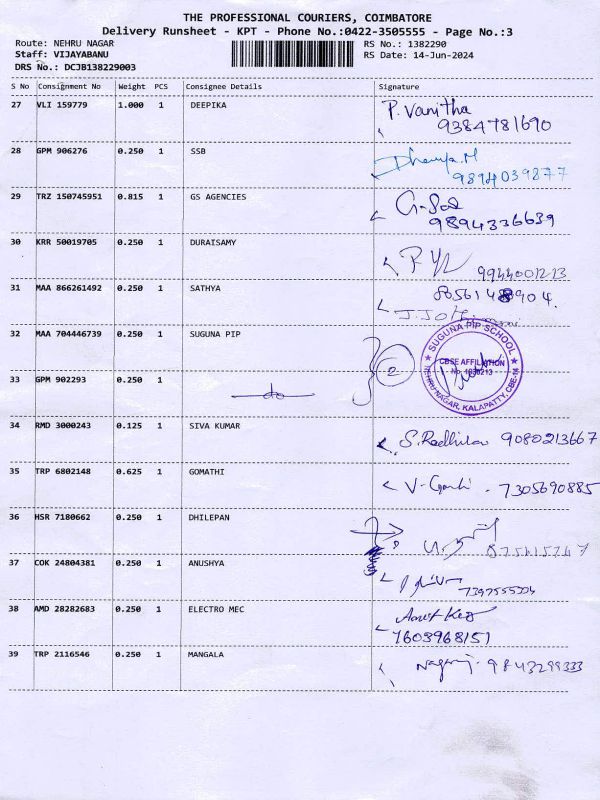 THE PROFESSIONAL COURIERS, COIMBATORE
Delivery Runsheet - KPT - Phone No.:0422-3505555 - Page No.:3
Route: NEHRU NAGAR RS No.: 1382290
Staff: VIJAYABANU RS Date: 14-Jun-2024
DRS No.: DCJB138229003
S No Consignment No Weight PCS Consignee Details Signature
27 VLI 159779 1.000 1 DEEPIKA P. Vanitha
9384781690
28 GPM 906276 0.250 1 SSB Dhanya.M
9894039877
29 TRZ 150745951 0.815 1 GS AGENCIES
9894336639
30 KRR 50019705 0.250 1 DURAISAMY
9944001213
31 MAA 866261492 0.250 1 SATHYA
32 MAA 704446739 0.250 1 SUGUNA PIP 2
SUGUNA PIP SCHOOL
CBSE AFFILIATION
No. 1930213
NEHRU NAGAR, KALAPATTY, CBE-14
33 GPM 902293 0.250 1 do
34 RMD 3000243 0.125 1 SIVA KUMAR 9080213667
35 TRP 6802148 0.625 1 GOMATHI 7305690885
36 HSR 7180662 0.250 1 DHILEPAN
37 COK 24804381 0.250 1 ANUSHYA
38 AMD 28282683 0.250 1 ELECTRO MEC
7603968151
39 TRP 2116546 0.250 1 MANGALA 9843299333